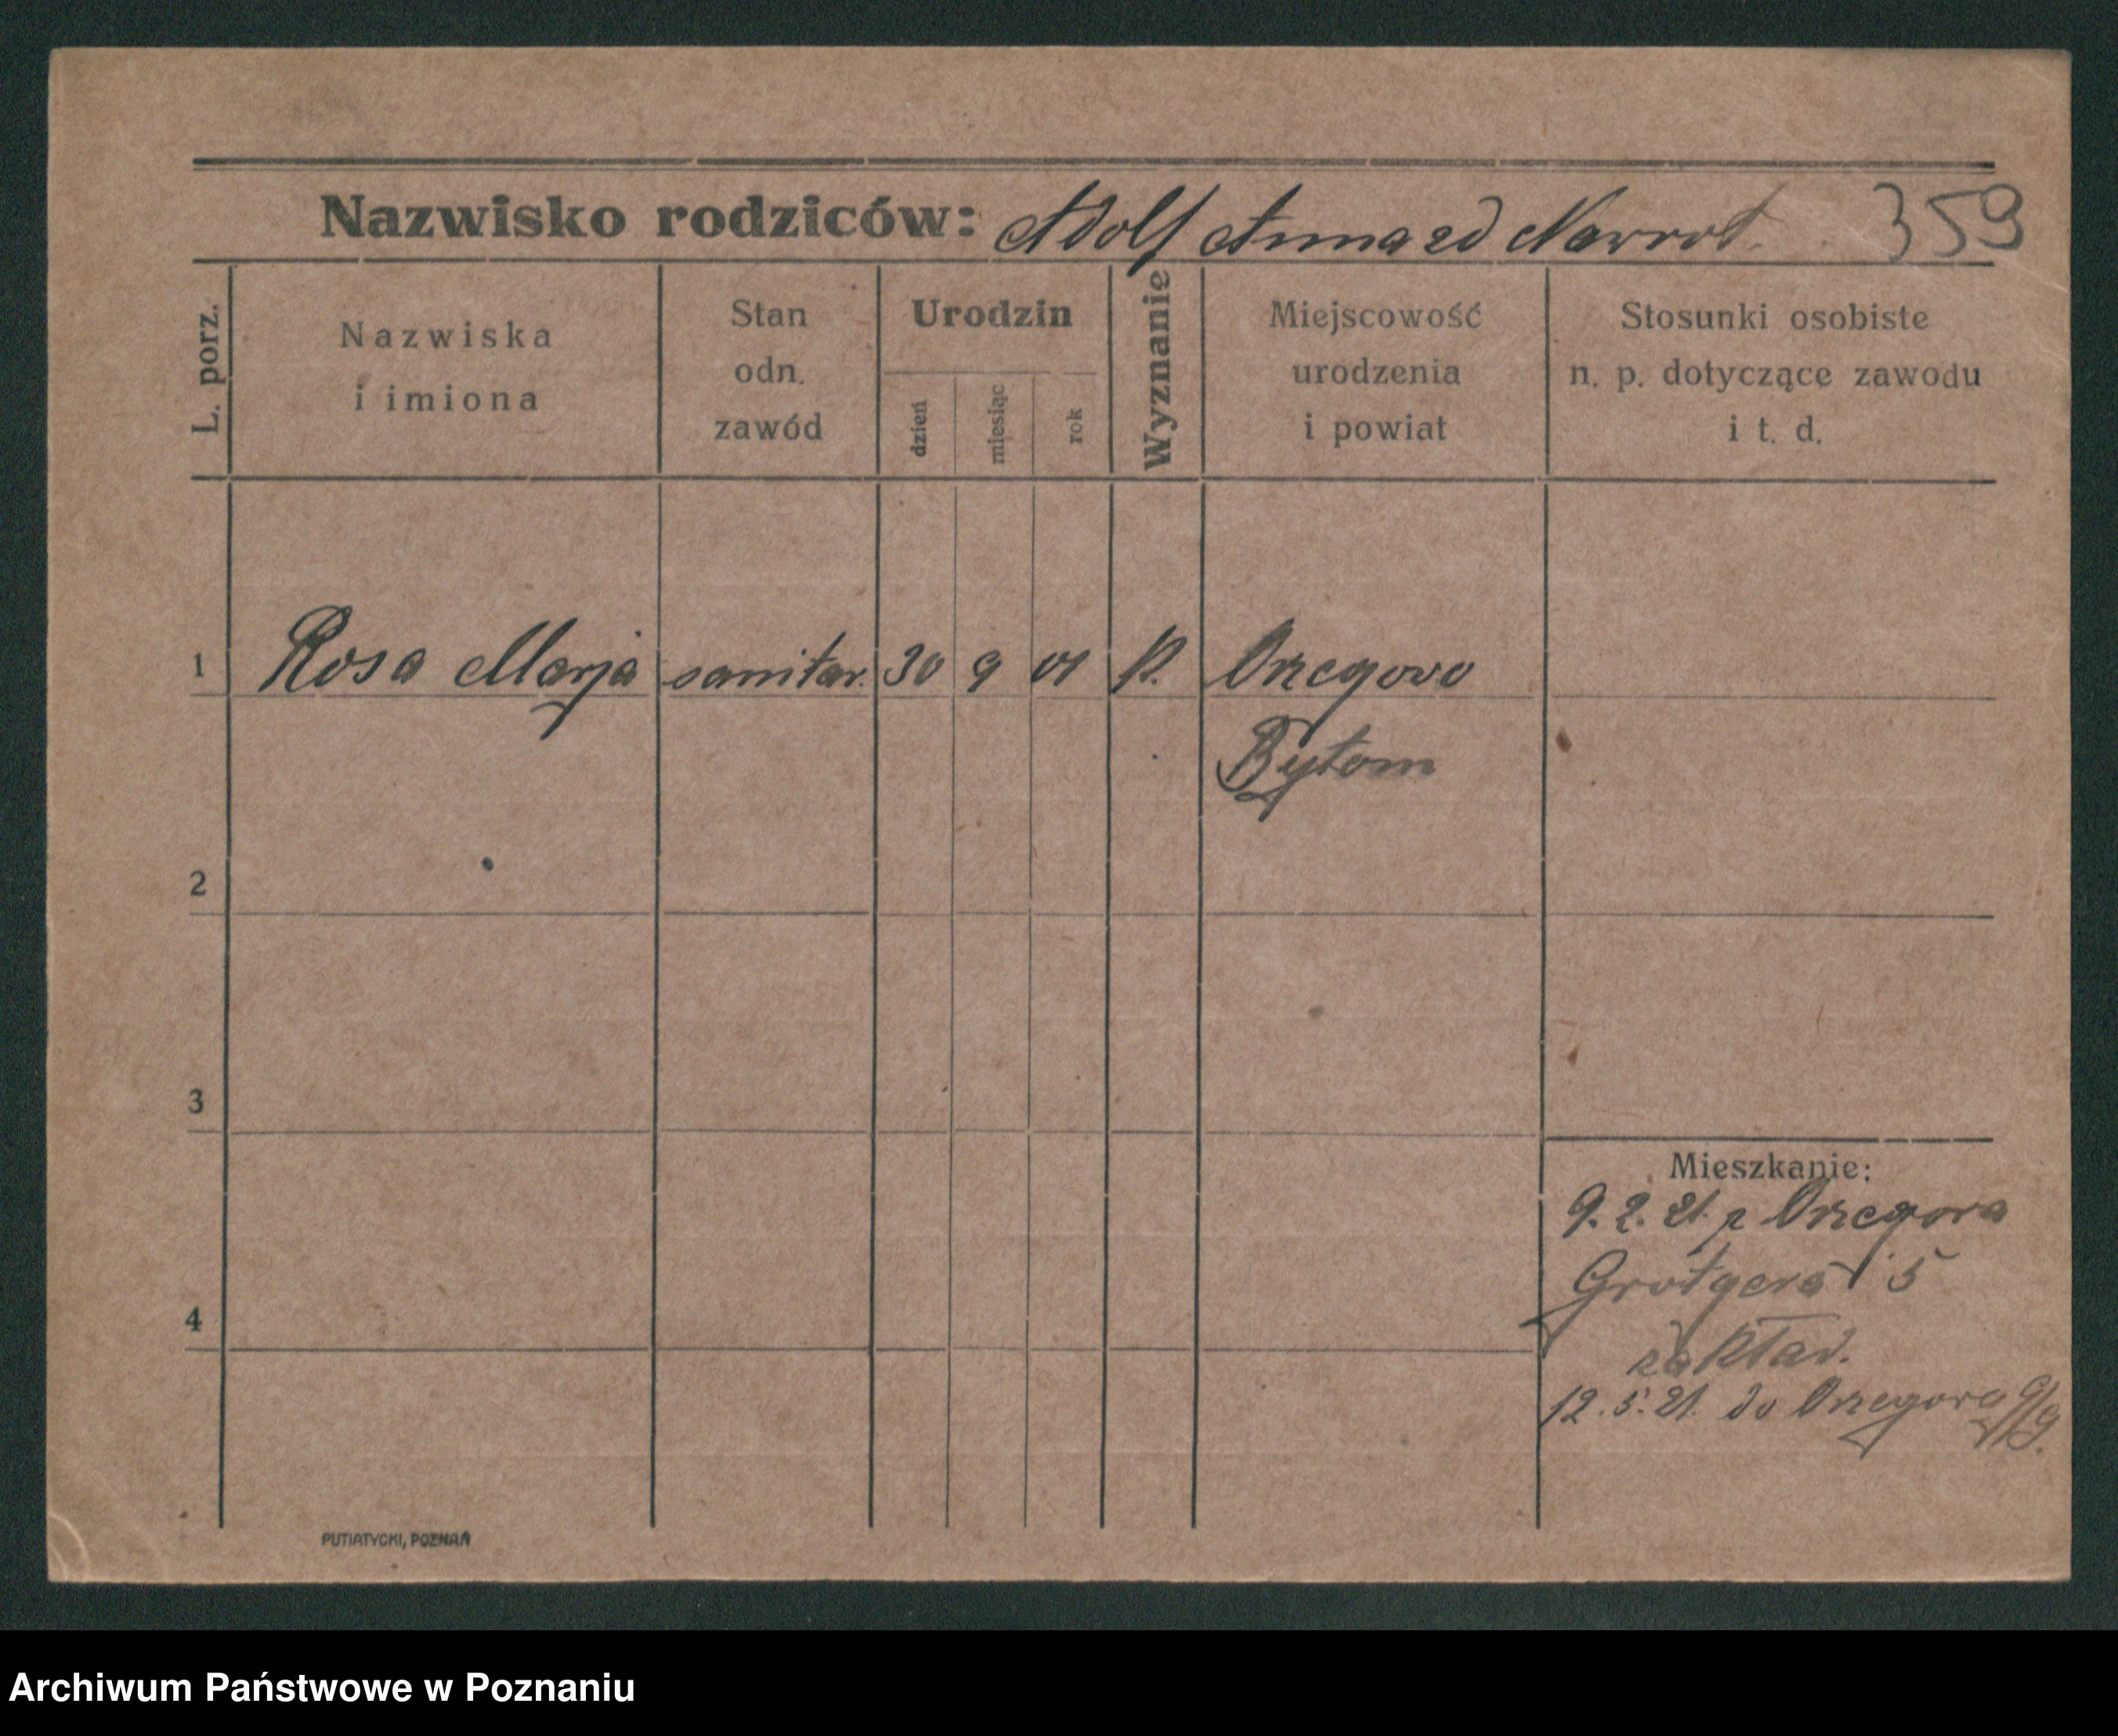 Nazwisko rodziców: Adolf Anna zd Nawrot. 359
L. porz.
Nazwiska
i imiona
Stan
odn.
zawód
Urodzin
dzień
miesiąc
rok
Wyznanie
Miejscowość
urodzenia
i powiat
Stosunki osobiste
n. p. dotyczące zawodu
i t. d.
1 Rosa Marja sanitar. 30 9 01 k. Orzegowo
Bytom
2
3
4
Mieszkanie:
9. 2. 21. z Orzegowa
Grotgera 5
zakład.
12. 5. 21. do Orzegowa
PUTIATYCKI, POZNAŃ
Archiwum Państwowe w Poznaniu